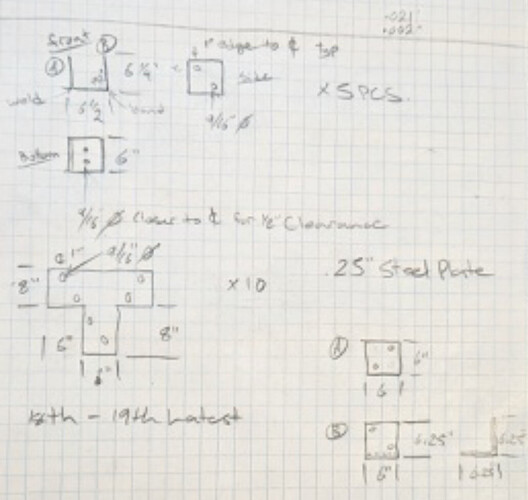 .021"
.002"
front
B
1" edge to ⅊ typ
A
6 1/4"
side
x 5 PCS.
weld
6 1/2
bend
9/16 Ø
Bottom
6"
9/16 Ø closer to ⅊ for 1/2" Clearance
1"
9/16" Ø
8"
x 10
.25" Steel Plate
8"
6"
6"
A
6"
6
18th - 19th latest
B
6.25"
6.25
6"
6.25